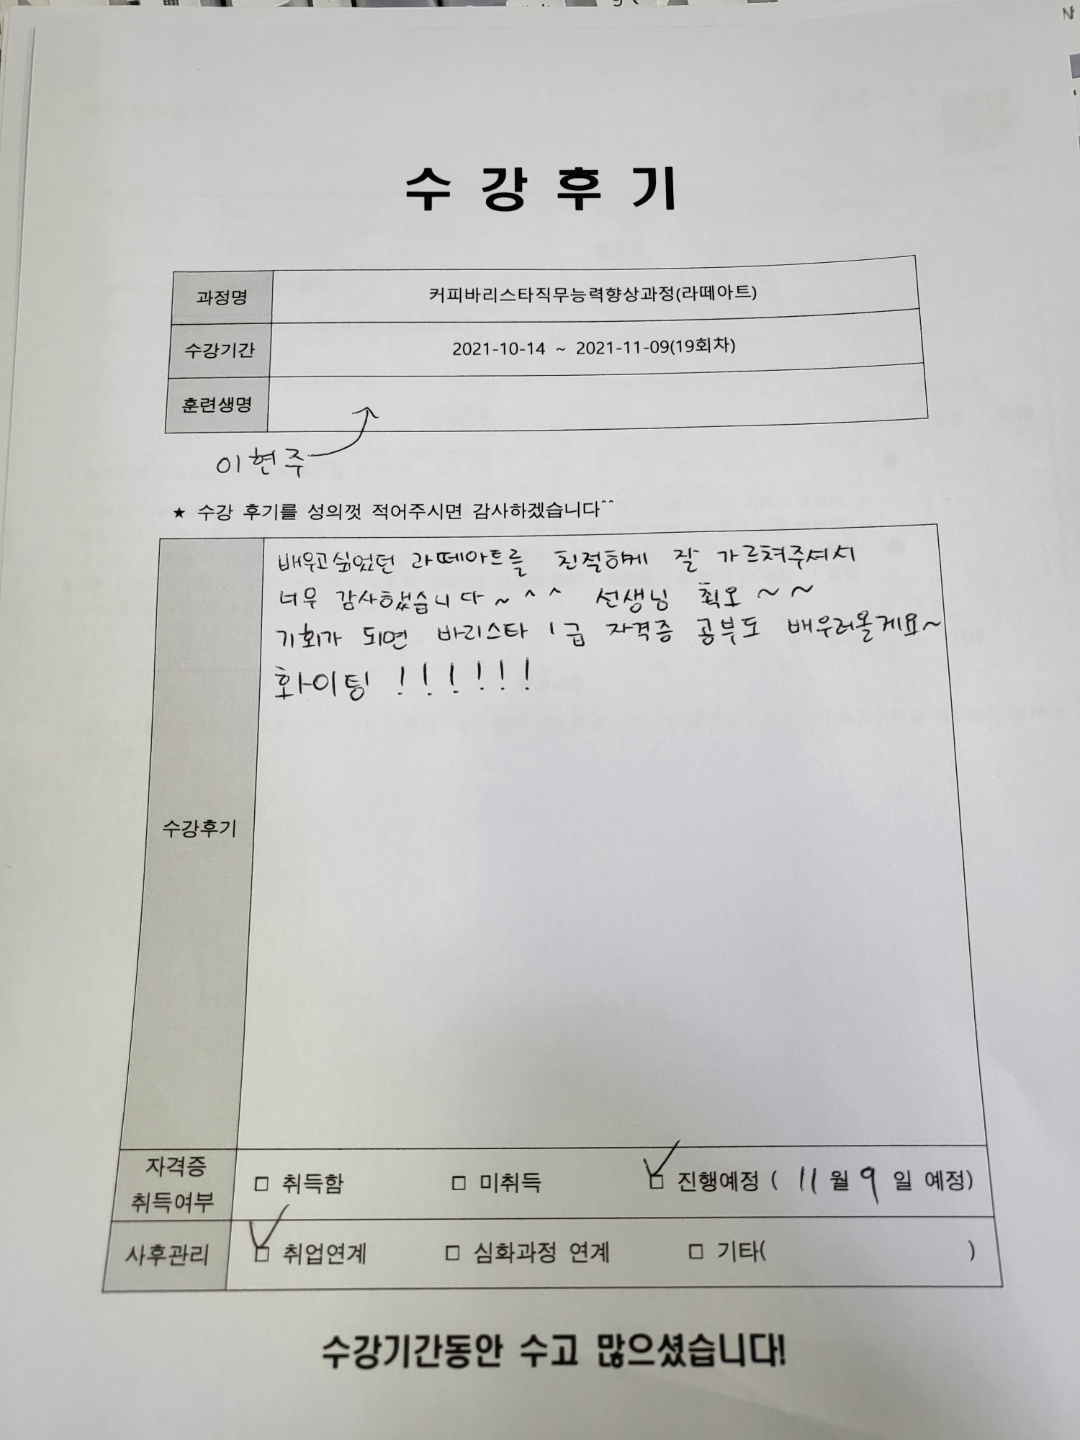 수 강 후 기
과정명 커피바리스타직무능력향상과정(라떼아트)
수강기간 2021-10-14 ~ 2021-11-09(19회차)
훈련생명
이현주
★ 수강 후기를 성의껏 적어주시면 감사하겠습니다^^
배우고싶었던 라떼아트를 친절하게 잘 가르쳐주셔서
너무 감사했습니다~^^ 선생님 최고~~
기회가 되면 바리스타 1급 자격증 공부도 배우러올게요~
화이팅!!!!!!
수강후기
자격증
취득여부
□ 취득함 □ 미취득 □ 진행예정 ( 11월 9일 예정)
사후관리 □ 취업연계 □ 심화과정 연계 □ 기타( )
수강기간동안 수고 많으셨습니다!